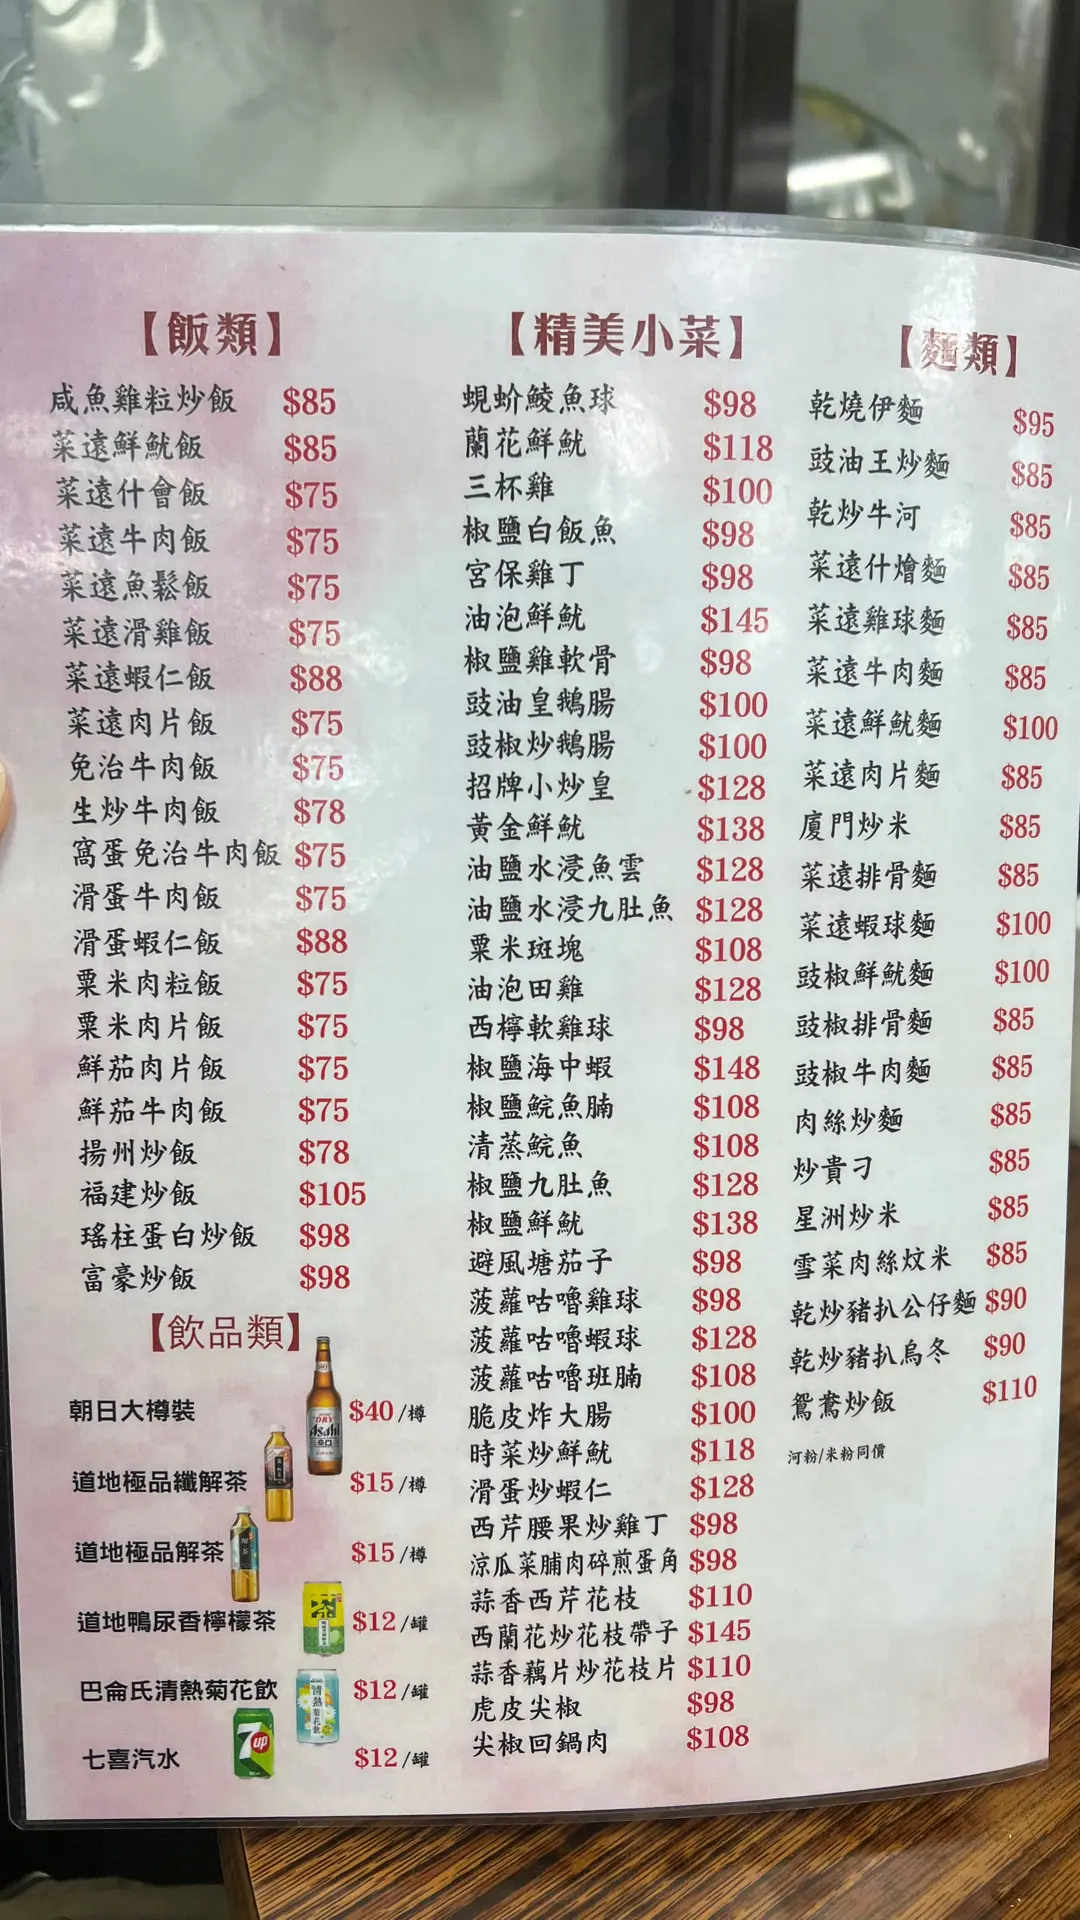 【飯類】
咸魚雞粒炒飯 $85
菜遠鮮魷飯 $85
菜遠什會飯 $75
菜遠牛肉飯 $75
菜遠魚鬆飯 $75
菜遠滑雞飯 $75
菜遠蝦仁飯 $88
菜遠肉片飯 $75
免治牛肉飯 $75
生炒牛肉飯 $78
窩蛋免治牛肉飯 $75
滑蛋牛肉飯 $75
滑蛋蝦仁飯 $88
粟米肉粒飯 $75
粟米肉片飯 $75
鮮茄肉片飯 $75
鮮茄牛肉飯 $75
揚州炒飯 $78
福建炒飯 $105
瑤柱蛋白炒飯 $98
富豪炒飯 $98
【飲品類】
朝日大樽裝 $40/樽
道地極品纖解茶 $15/樽
道地極品解茶 $15/樽
道地鴨尿香檸檬茶 $12/罐
巴侖氏清熱菊花飲 $12/罐
七喜汽水 $12/罐
DRY
Asahi
辛口
清熱菊花飲
7up
【精美小菜】
蜆蚧鯪魚球 $98
蘭花鮮魷 $118
三杯雞 $100
椒鹽白飯魚 $98
宮保雞丁 $98
油泡鮮魷 $145
椒鹽雞軟骨 $98
豉油皇鵝腸 $100
豉椒炒鵝腸 $100
招牌小炒皇 $128
黃金鮮魷 $138
油鹽水浸魚雲 $128
油鹽水浸九肚魚 $128
粟米斑塊 $108
油泡田雞 $128
西檸軟雞球 $98
椒鹽海中蝦 $148
椒鹽鯇魚腩 $108
清蒸鯇魚 $108
椒鹽九肚魚 $128
椒鹽鮮魷 $138
避風塘茄子 $98
菠蘿咕嚕雞球 $98
菠蘿咕嚕蝦球 $128
菠蘿咕嚕班腩 $108
脆皮炸大腸 $100
時菜炒鮮魷 $118
滑蛋炒蝦仁 $128
西芹腰果炒雞丁 $98
涼瓜菜脯肉碎煎蛋角 $98
蒜香西芹花枝 $110
西蘭花炒花枝帶子 $145
蒜香藕片炒花枝片 $110
虎皮尖椒 $98
尖椒回鍋肉 $108
【麵類】
乾燒伊麵 $95
豉油王炒麵 $85
乾炒牛河 $85
菜遠什燴麵 $85
菜遠雞球麵 $85
菜遠牛肉麵 $85
菜遠鮮魷麵 $100
菜遠肉片麵 $85
廈門炒米 $85
菜遠排骨麵 $85
菜遠蝦球麵 $100
豉椒鮮魷麵 $100
豉椒排骨麵 $85
豉椒牛肉麵 $85
肉絲炒麵 $85
炒貴刁 $85
星洲炒米 $85
雪菜肉絲炆米 $85
乾炒豬扒公仔麵 $90
乾炒豬扒烏冬 $90
鴛鴦炒飯 $110
河粉/米粉同價